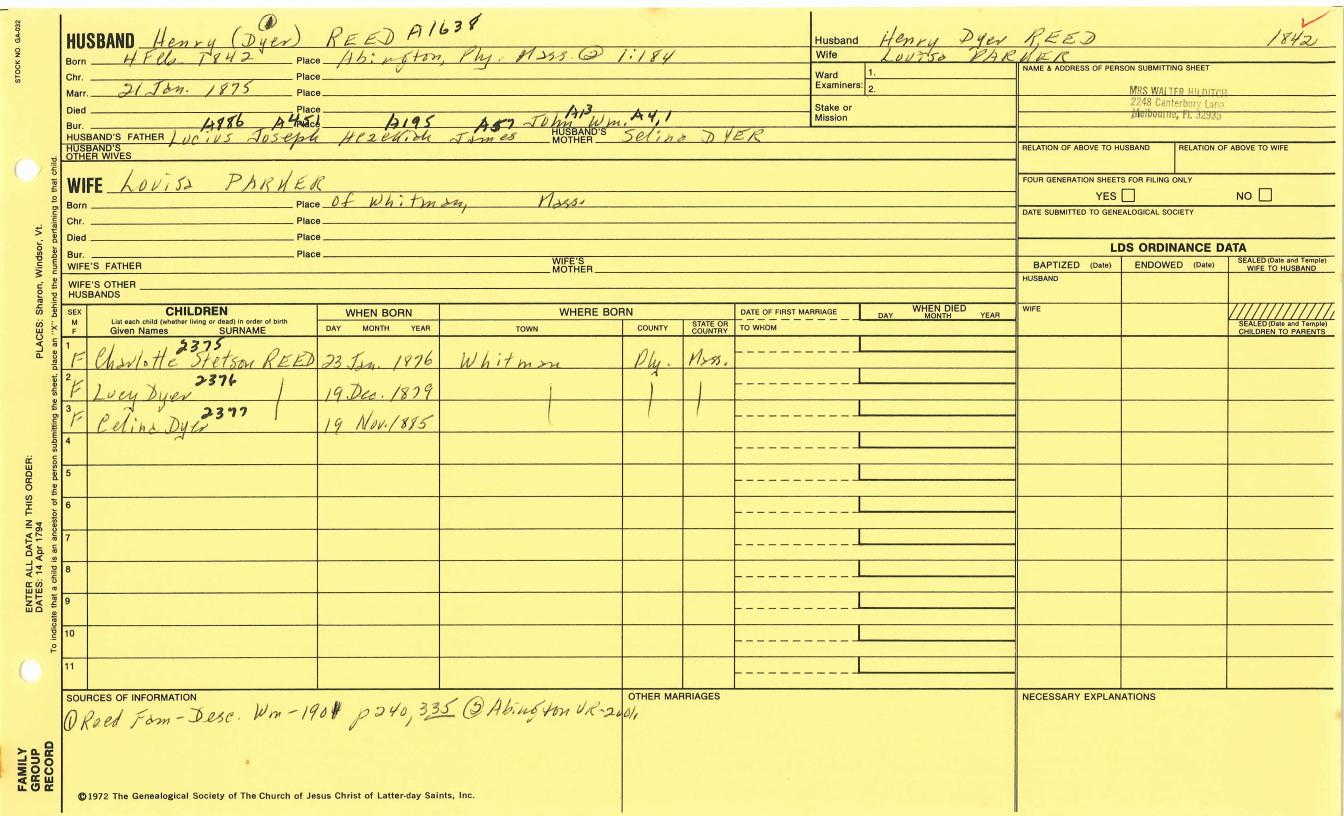 STOCK NO. GA-032
PLACES: Sharon, Windsor, Vt.
ENTER ALL DATA IN THIS ORDER:
DATES: 14 Apr 1794
To indicate that a child is an ancestor of the person submitting the sheet, place an "X" behind the number pertaining to that child.
FAMILY GROUP RECORD
HUSBAND Henry (Dyer) ① REED A1638
Born 4 Feb. 1842 Place Abington, Ply. Mass. ② 1:184
Chr. Place
Marr. 21 Jan. 1875 Place
Died Place
Bur. Place
A886 A451 A195 A57 A13 A4,1
HUSBAND'S FATHER Lucius Joseph Hezekiah James John Wm. HUSBAND'S MOTHER Selina DYER
HUSBAND'S OTHER WIVES
WIFE Louisa PARKER
Born Place of Whitman, Mass.
Chr. Place
Died Place
Bur. Place
WIFE'S FATHER WIFE'S MOTHER
WIFE'S OTHER HUSBANDS
Husband Henry Dyer REED 1842
Wife Louisa PARKER
Ward Examiners: 1.
2.
Stake or Mission
NAME & ADDRESS OF PERSON SUBMITTING SHEET
MRS WALTER HILDITCH
2248 Canterbury Lane
Melbourne, Fl. 32935
RELATION OF ABOVE TO HUSBAND RELATION OF ABOVE TO WIFE
FOUR GENERATION SHEETS FOR FILING ONLY
YES NO
DATE SUBMITTED TO GENEALOGICAL SOCIETY
LDS ORDINANCE DATA
BAPTIZED (Date) ENDOWED (Date) SEALED (Date and Temple) WIFE TO HUSBAND
HUSBAND
WIFE
SEALED (Date and Temple) CHILDREN TO PARENTS
SEX M F
CHILDREN
List each child (whether living or dead) in order of birth
Given Names SURNAME
WHEN BORN
DAY MONTH YEAR
WHERE BORN
TOWN COUNTY STATE OR COUNTRY
DATE OF FIRST MARRIAGE
TO WHOM
WHEN DIED
DAY MONTH YEAR
2375
1 F Charlotte Stetson REED 23 Jan. 1876 Whitman Ply. Mass.
2376
2 F Lucy Dyer 19 Dec. 1879
2377
3 F Celina Dyer 19 Nov. 1885
4
5
6
7
8
9
10
11
SOURCES OF INFORMATION
① Reed Fam-Desc. Wm-1901 p240, 335 ② Abington VR-
OTHER MARRIAGES
NECESSARY EXPLANATIONS
©1972 The Genealogical Society of The Church of Jesus Christ of Latter-day Saints, Inc.